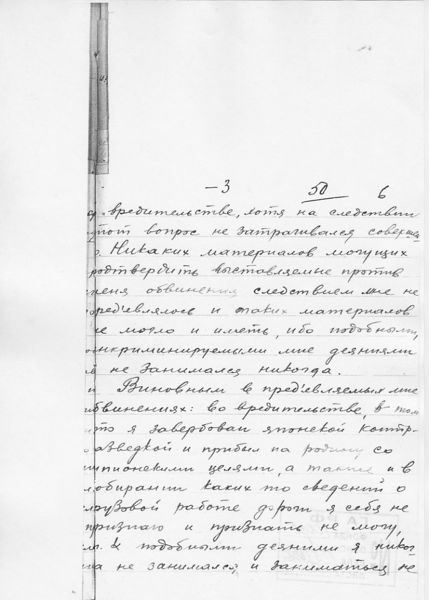 -3 50 6
вредительстве, хотя на следствии
этот вопрос не затрагивался соверше
о. Никаких материалов могущих
подтвердить выставляемые против
меня обвинения следствием мне не
пред'евлялось и таких материалов
не могло и иметь, ибо подобными,
инкриминируемыми мне деяниями
я не занимался никогда.
Виновным в пред'евляемых мне
обвинениях: во вредительстве, в том
что я завербован японской контр-
азведкой и прибыл на родину со
шпионскими целями, а также и в
собирании каких то сведений о
грузовой работе дороги я себя не
признаю и признать не могу,
подобными деяниями я никог
да не занимался и заниматься не